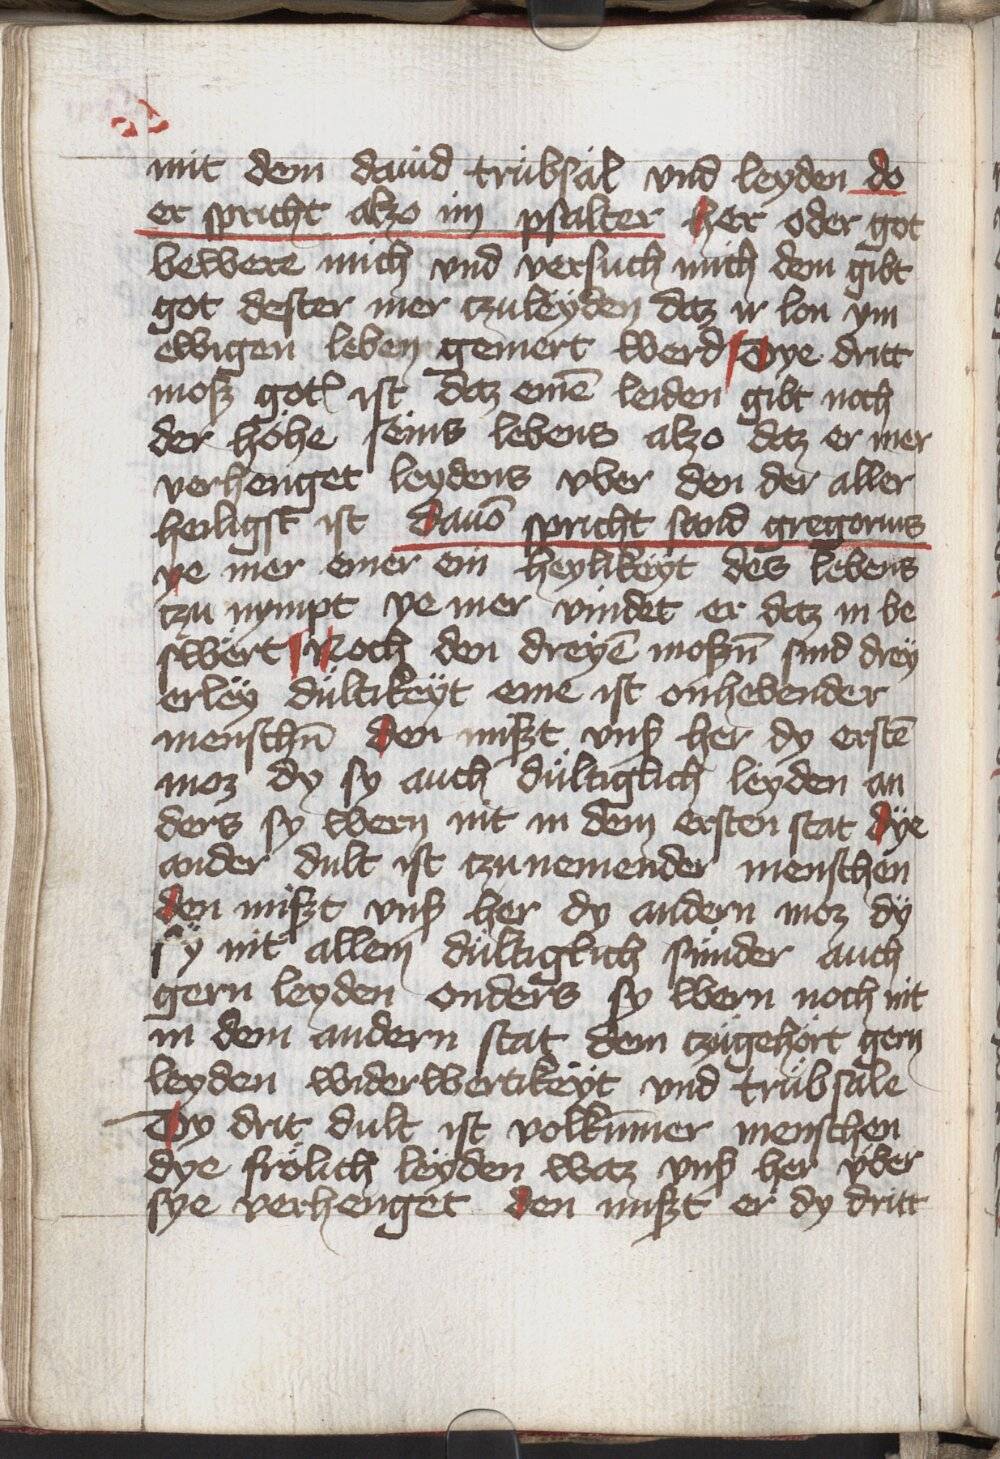 mit dem dauid trübsal vnd leyden do
er spricht alzo im psalter her oder got
bewere mich vnd versuch mich dem gibt
got dester mer tzuleyden daz ir lon ym
ewigen leben gemert werd Dye dritt
moß gotz ist daz einē leiden gibt noch
der höhe seins lebens alzo daz er mer
verhenget leydens vber den der aller
heiligst ist dauō spricht sand gregorius
ye mer einer ein heylikeyt des lebens
tzu nympt ye mer vindet er daz in be
swert Noch den dreyē moßn̄ sind drey
erley dultikeyt eine ist anhebender
menschn̄ den mißt vnß her dy erstē
moz dy sy auch dultiglich leyden an
ders sy wern nit in dem ersten stat dye
ander dult ist tzunemender menschen
den mißzt vnß her dy andern moz dy
sy nit allein dultiglich sunder auch
gern leyden anders sy wern noch nit
in dem andern stat dem tzugehört gern
leyden widerwertikeyt vnd trübsale
Dy drit dult ist volkumer menschen
dye frölich leyden waz vnß her vber
sye verhenget den mißzt er dy dritt